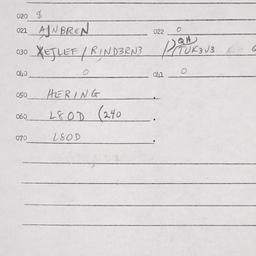 020 $
021 AJNBREN 022 0
030 XEJLEF / RIND3RN3
040 0 041 0
050 HERING .
060 L80D (240 .
070 L80D .